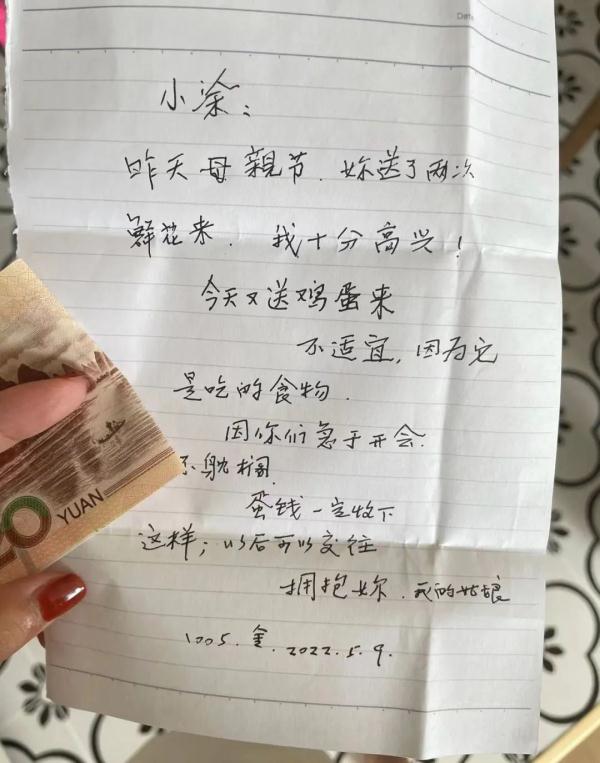 Date
小涂：
昨天母親节.妳送了两次
鲜花来.我十分高兴！
今天又送鸡蛋来
不适宜,因为它
是吃的食物.
因你们急于开会.
不躭搁
蛋钱一定收下
这样；以后可以交往
拥抱妳.我的姑娘
1005.金.2022.5.9.
YUAN